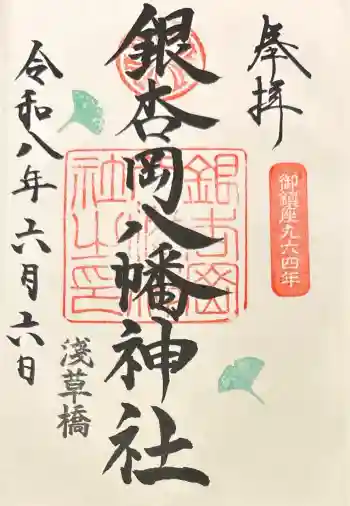 奉拝
御鎮座九六四年
銀杏岡八幡神社
銀杏岡八幡神社之印
淺草橋
令和八年六月六日